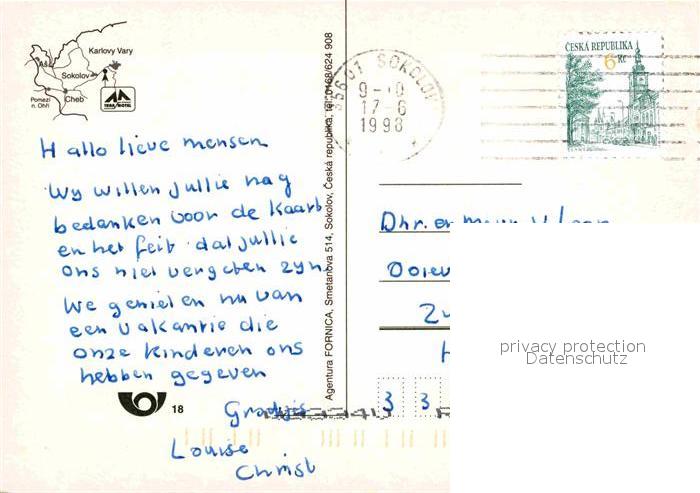 Karlovy Vary
Aš
Sokolov
Cheb
Pomezí
n. Ohří
Hallo lieve mensen
Wy willen jullie nag
bedanken voor de kaart
en het feit dat jullie
ons niet vergeten zyn.
We genieten nu van
een vakantie die
onze kinderen ons
hebben gegeven
Groetjes
Louise
Christ
18
Agentura FORNICA, Smetanova 514, Sokolov, Česká republika, tel. 0168/624 908
356 01 SOKOLOV
17 6
1998
ČESKÁ REPUBLIKA
6 Kč
Dhr. en
3 3
privacy protection
Datenschutz